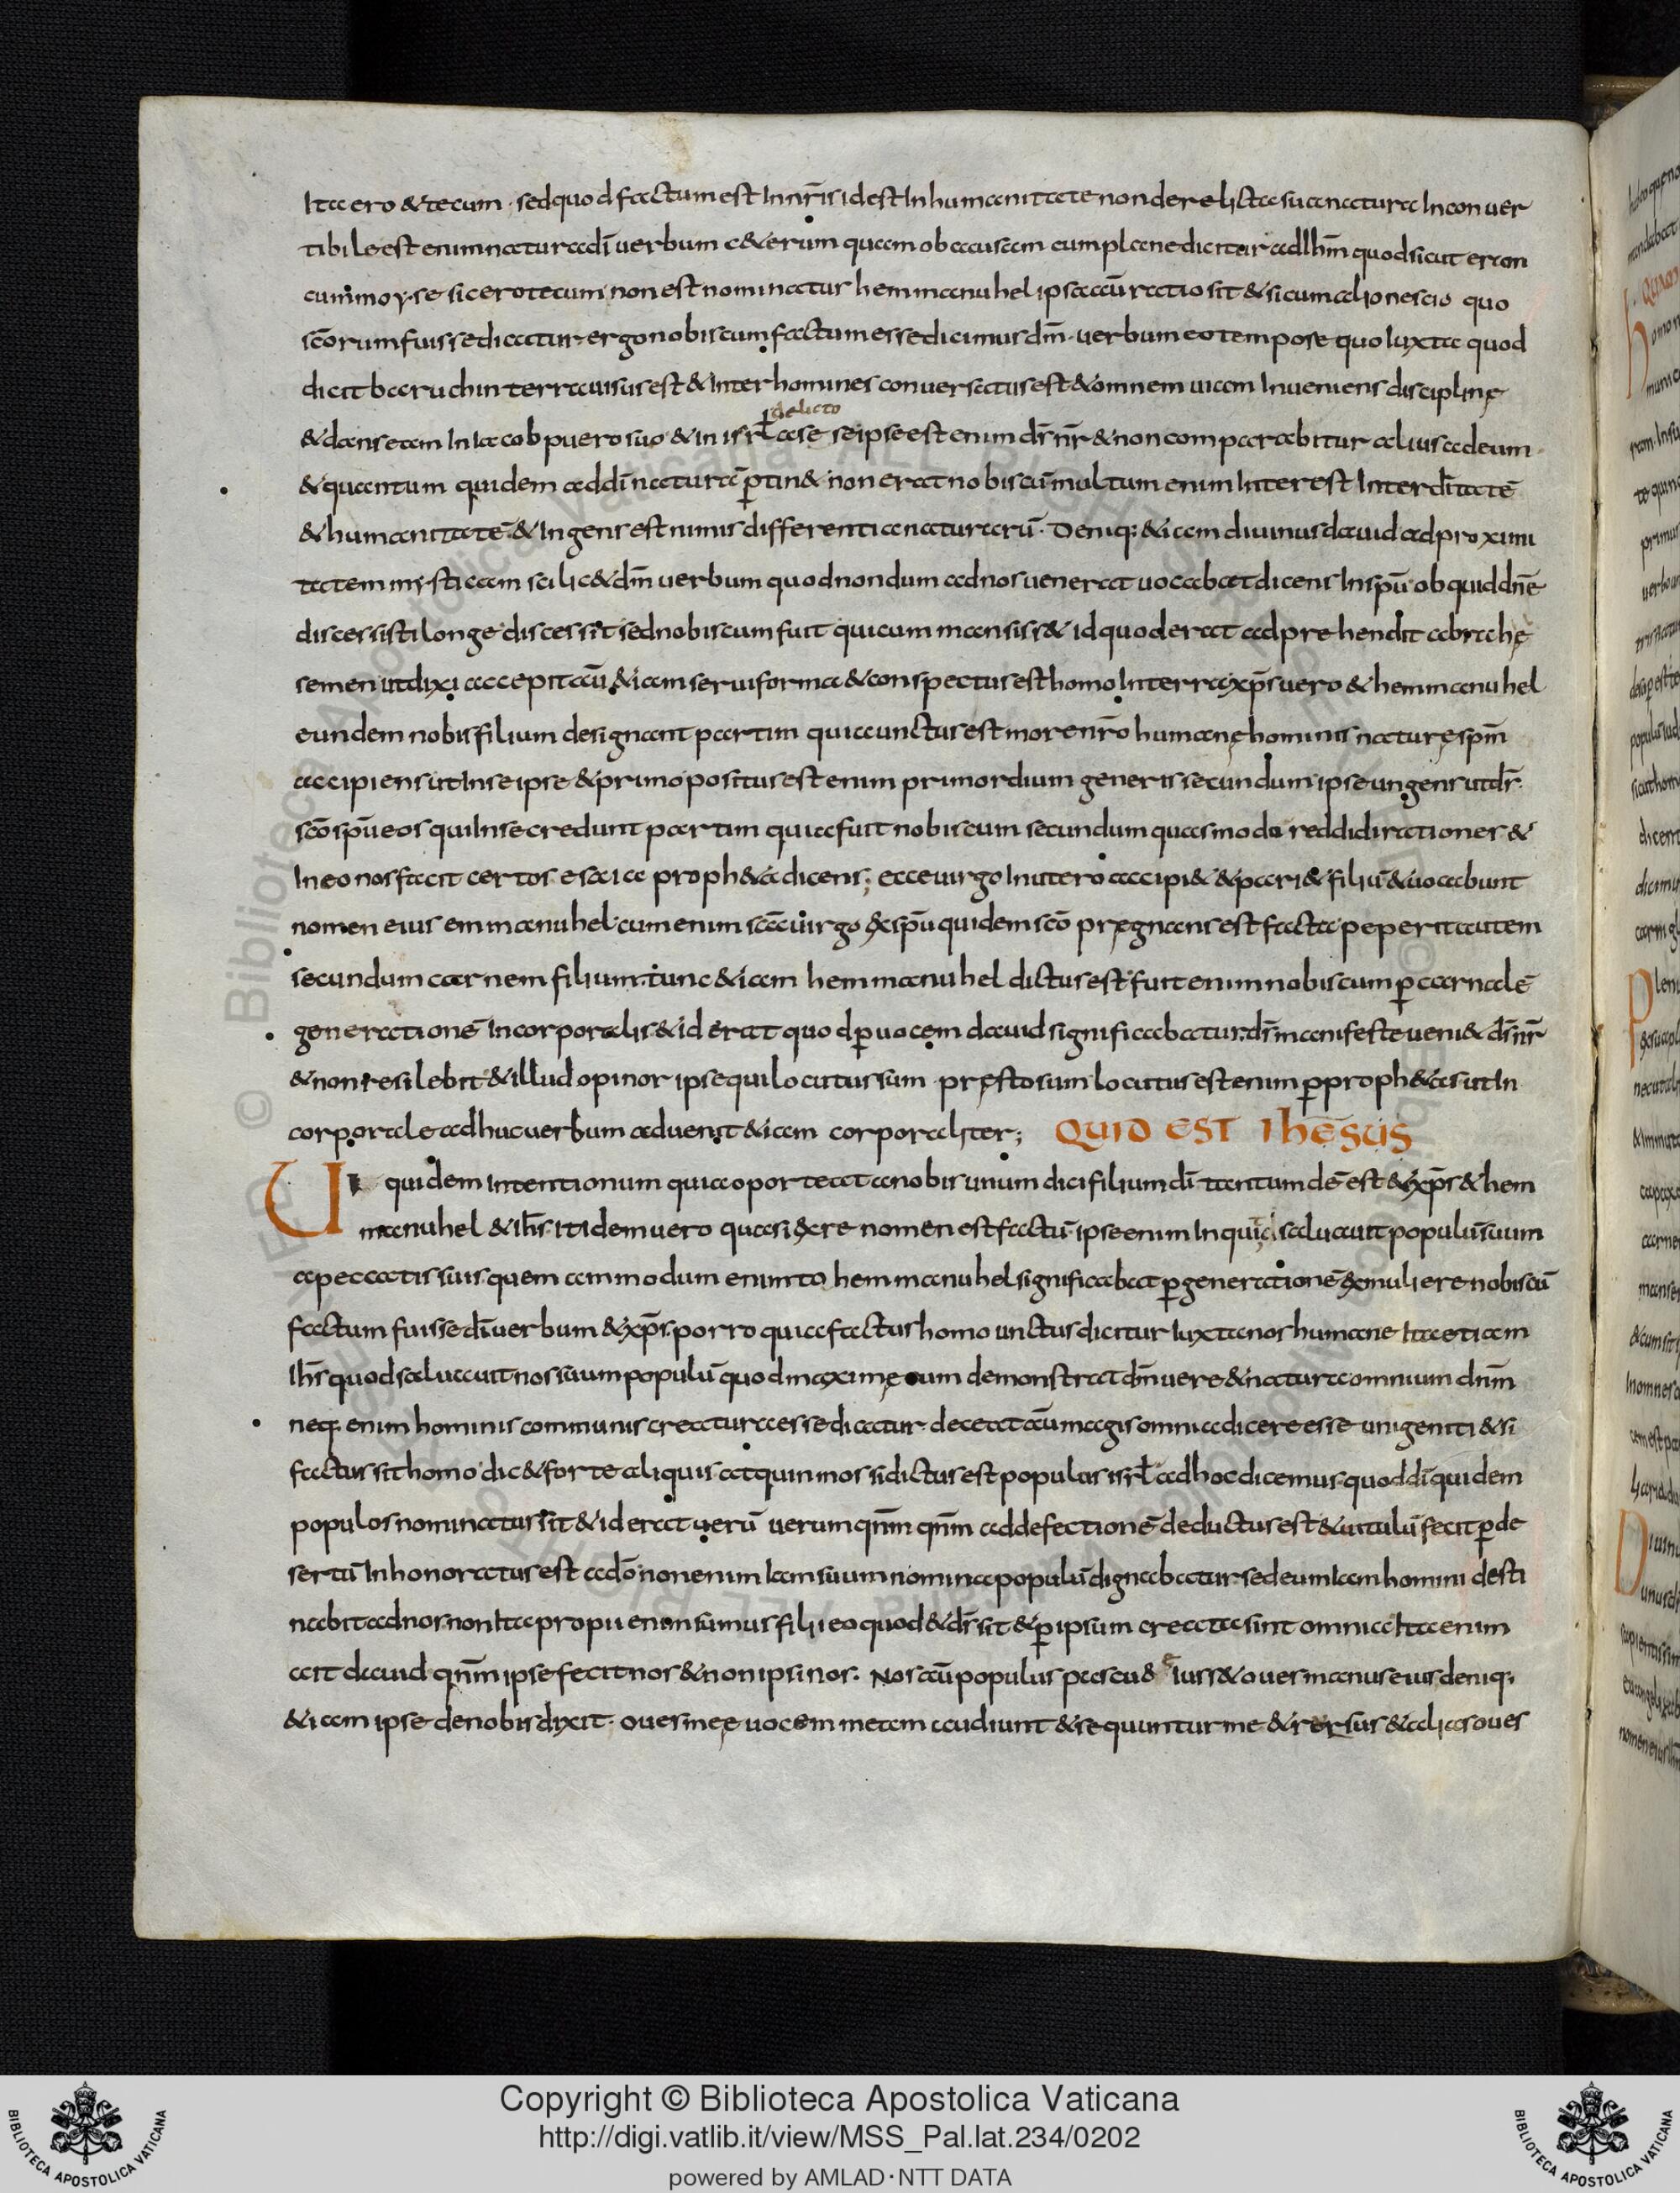 Ita ero & tecum · sed quod factum est In nr̄is id est In humanitate non derelicta sua natura Inconuer
tibile est enim natura dī uerbum c&erum quam ob causam cum plane dicitur ad Ihm̄ quod sicut eram
cum moyse sic ero tecum non est nominatur hemmanuhel ipsa aū ratio sit & si cum alio nescio quo
scōrum fuisse dicatur ergo nobiscum factum esse dicimus dm̄ · uerbum eo tempose quo Iuxta quod
dicit baruch in terra uisus est & Inter homines conuersatus est & omnem uiam Inueniens disciplinę
delicto
& dans eam In Iacob puero suo & in isrł a se se ipse est enim ds̄ nr̄ & non comparabitur alius ad eum ·
& quantum quidem ad dī naturā ꝑtin& non erat nobiscū multum enim Interest Inter dītatē
& humanitatē & Ingens est nimis differentia naturarū · Deniq; &iam diuinus dauid ad proximi
tatem mysticam scilic& dm̄ uerbum quod nondum ad nos uenerat uocabat dicens In spū ob quid dnē
discessisti longe discessit sed nobiscum fuit qui cum mansiss& id quod erat adprehendit abrahę
semen ut dixi accepit aū &iam serui forma & conspectus est homo In terra xp̄s uero & hemmanuhel
eundem nobis filium designant partim quia unctus est more nr̄o humanę hominis naturę spm̄
accipiens ut In se ipse & primo positus est enim primordium generis secundum ipse ungens ut ds̄
scō spū eos qui In se credunt partim quia fuit nobiscum secundum quas modo reddidi rationes &
In eo nos facit certos esaia proph&a dicens; ecce uirgo In utero accipi& & pari& filiū & uocabunt
nomen eius emmanuhel cum enim scā uirgo ex spū quidem scō pręgnans est facta peperit autem
secundum carnem filium tunc &iam hemmanuhel dictus est fuit enim nobiscum ꝑ carnalē
generationē Incorporalis & id erat quod ꝑ uocem dauid significabatur ds̄ manifeste ueni& ds̄ nr̄
& non resilebit & illud opinor ipse qui locutus sum pręsto sum locutus est enim ꝑ proph&as ut In
corporale adhuc uerbum aduenit &iam corporaliter; QUID EST IhESUS
Ut quidem Intentionum quia oporteat a nobis unum dici filium dī tantum dē est & xp̄s & hem
manuhel & ihs̄ itidem uero quasi ex re nomen est factū · ipse enim Inquid saluauit populū suum
a peccatis suis quem ammodum enim to hemmanuhel significabat ꝑ generationē ex muliere nobiscū
factum fuisse dī uerbum & xp̄s porro quia factus homo unctus dicitur Iuxta nos humane Ita etiam
Ihs̄ quod saluauit nos suum populū quod maximę eum demonstrat dm̄ uere & natura omnium dnm̄
neq; enim hominis communis creatura esse dicatur · deceat aū magis omnia dicere esse unigeniti & si
factus sit homo dic& forte aliquis atquin mos si dictus est populus isrł ad hoc dicemus quod dī quidem
populos nominatus sit & id erat uerū uerum qnm̄ qnm̄ ad defectionē deductus est & uitulū fecit ꝑ de
sertū Inhonoratus est a dō non enim Iam suum nomina populū dignabatur sed eum Iam homini desti
nabit ad nos non Ita proprii enim sumus filii eo quod & ds̄ sit & ꝑ ipsum creata sint omnia Ita enim
ait dauid qnm̄ ipse fecit nos & non ipsi nos · Nos aū populus pascuę eius & oues manus eius deniq;
&iam ipse de nobis dixit · oues meę uocem meam audiunt & sequuntur me & rersus & alias oues
Copyright © Biblioteca Apostolica Vaticana
http://digi.vatlib.it/view/MSS_Pal.lat.234/0202
powered by AMLAD·NTT DATA
BIBLIOTECA APOSTOLICA VATICANA
BIBLIOTECA APOSTOLICA VATICANA